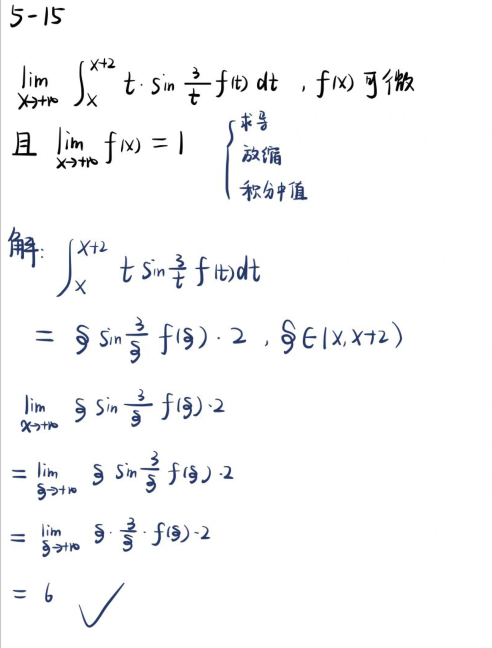 5-15
lim x→+∞ ∫_x^{x+2} t·sin 3/t f(t) dt , f(x) 可微
且 lim x→+∞ f(x) = 1
{ 求导
放缩
积分中值
解: ∫_x^{x+2} t sin 3/t f(t) dt
= ξ sin 3/ξ f(ξ)·2 , ξ∈(x, x+2)
lim x→+∞ ξ sin 3/ξ f(ξ)·2
= lim ξ→+∞ ξ sin 3/ξ f(ξ)·2
= lim ξ→+∞ ξ·3/ξ·f(ξ)·2
= 6 ✓